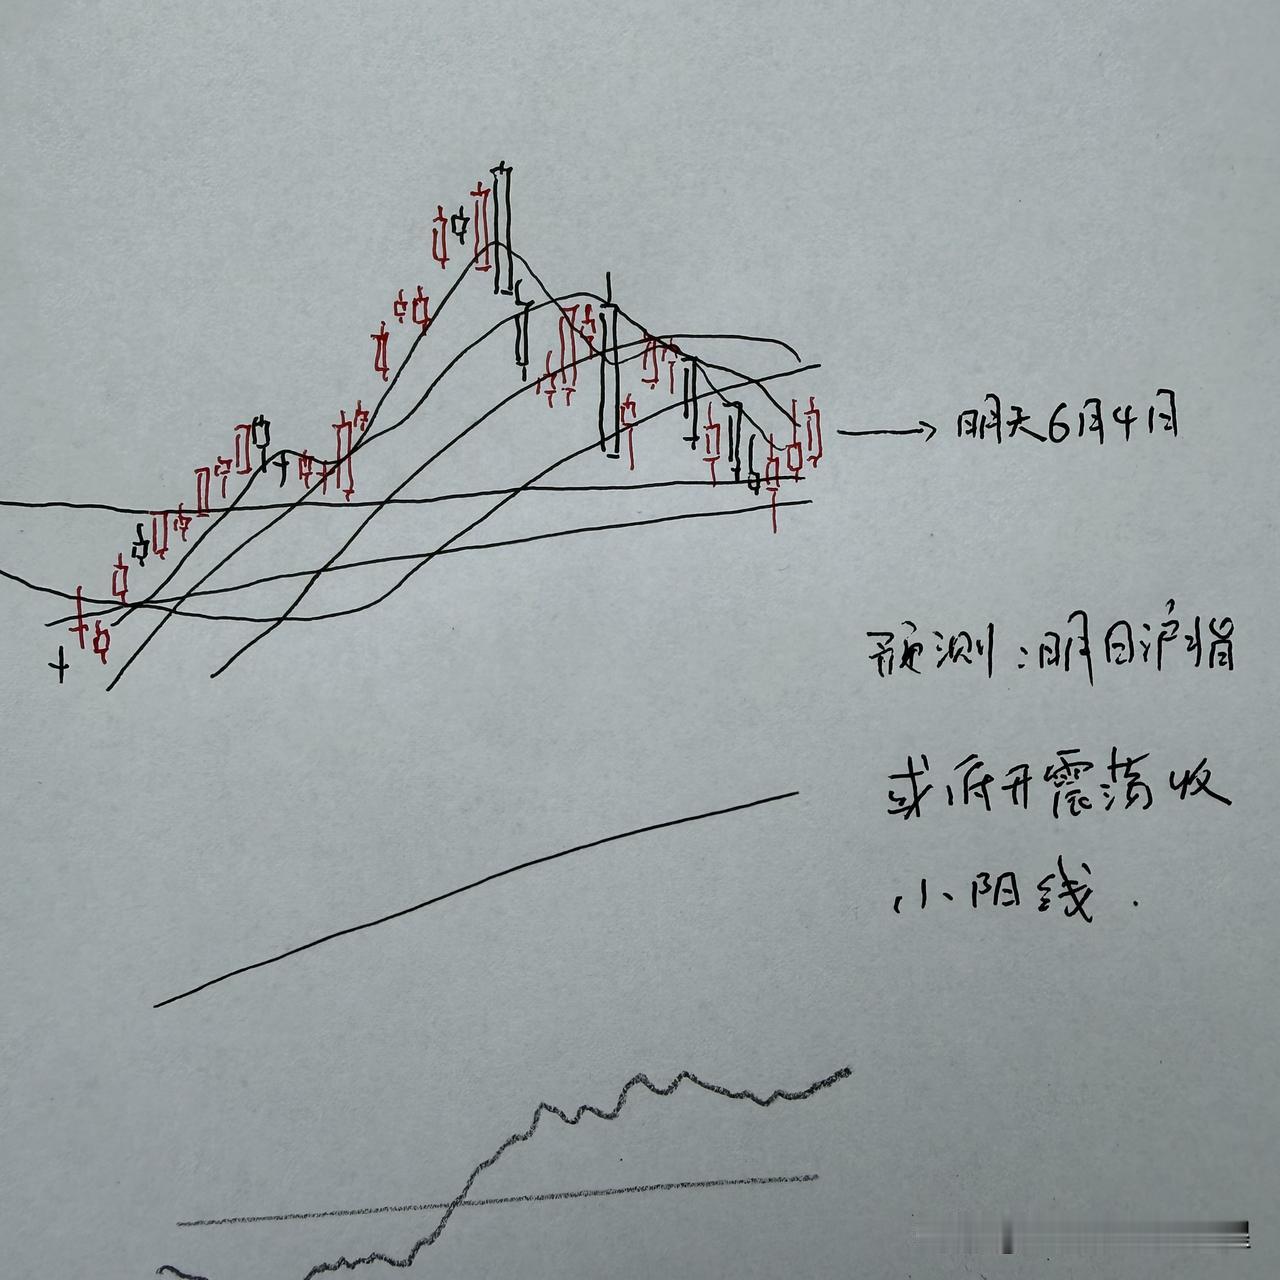 明天6月4日
预测:明日沪指
或底开震荡收
小阳线.